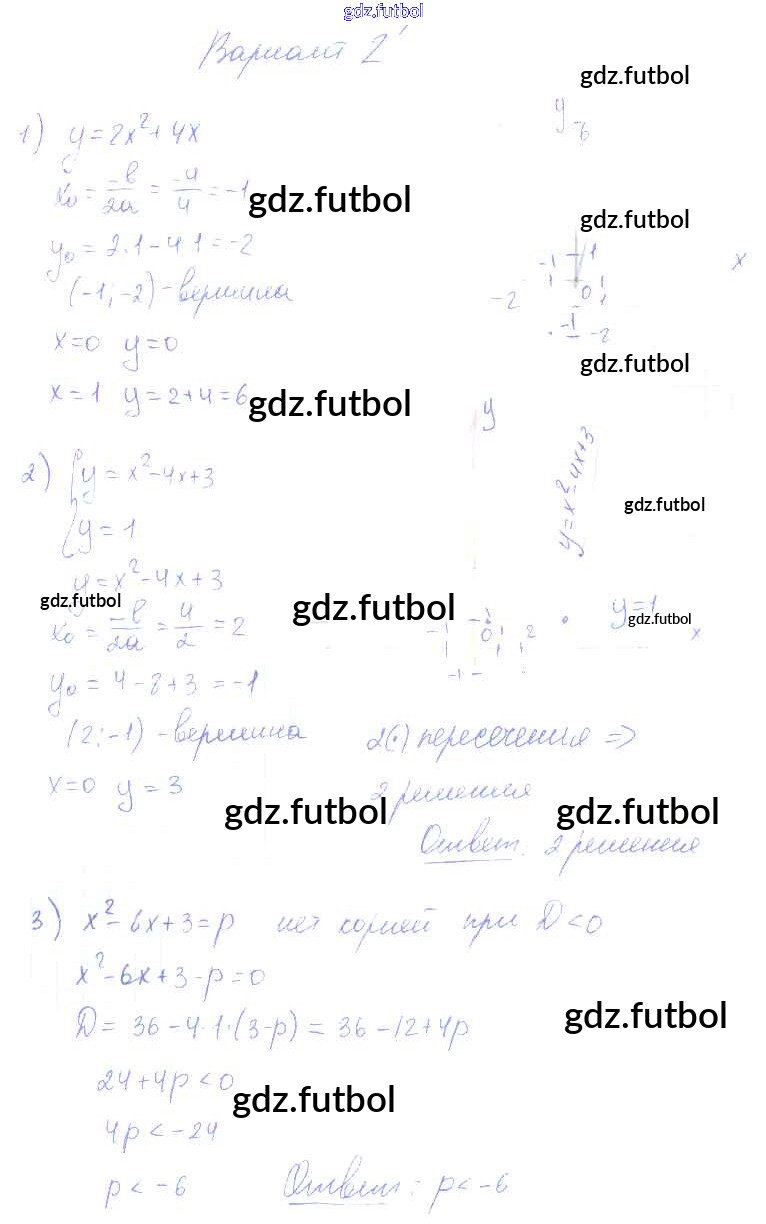 gdz.futbol
Вариант 2
gdz.futbol
1) y = 2x² + 4x
y
-6
x₀ = -b/2a = -4/4 = -1
gdz.futbol
gdz.futbol
y₀ = 2·1 - 4·1 = -2
-1 1
x
(-1; -2) - вершина
-2 0 1
-1 -2
x=0 y=0
gdz.futbol
x = 1 y = 2+4 = 6
gdz.futbol
y
2) { y = x² - 4x + 3
y = x² - 4x + 3
gdz.futbol
{ y = 1
y = x² - 4x + 3
gdz.futbol
gdz.futbol
y=1
gdz.futbol
x₀ = -b/2a = 4/2 = 2
-1 0 1 2
x
-1
y₀ = 4 - 8 + 3 = -1
(2; -1) - вершина
2(·) пересечения =>
x=0 y = 3
2 решения
gdz.futbol
gdz.futbol
Ответ. 2 решения
3) x² - 6x + 3 = p нет корней при D < 0
x² - 6x + 3 - p = 0
D = 36 - 4·1·(3-p) = 36 - 12 + 4p
gdz.futbol
24 + 4p < 0
gdz.futbol
4p < -24
p < -6 Ответ: p < -6